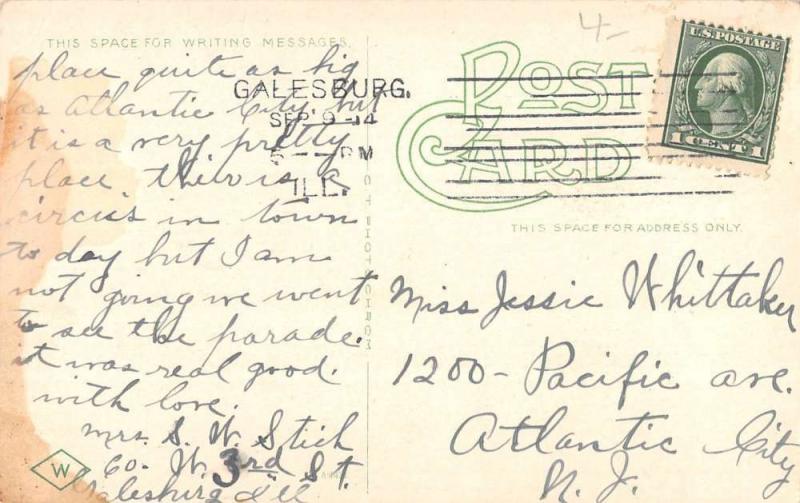 4-
THIS SPACE FOR WRITING MESSAGES.
place quite as big
as Atlantic City, but
it is a very pretty
place. their is a
circus in town
to day but I am
not going we went
to see the parade.
it was real good.
with love.
Mrs. S. W. Stich
60. W. 3rd St.
Galesburg Ill
3
W
GALESBURG.
SEP 9-14
5 - PM
ILL.
POST
CARD
U.S. POSTAGE
1 CENT 1
THIS SPACE FOR ADDRESS ONLY.
Miss Jessie Whittaker
1200 - Pacific ave.
Atlantic City
N. J.